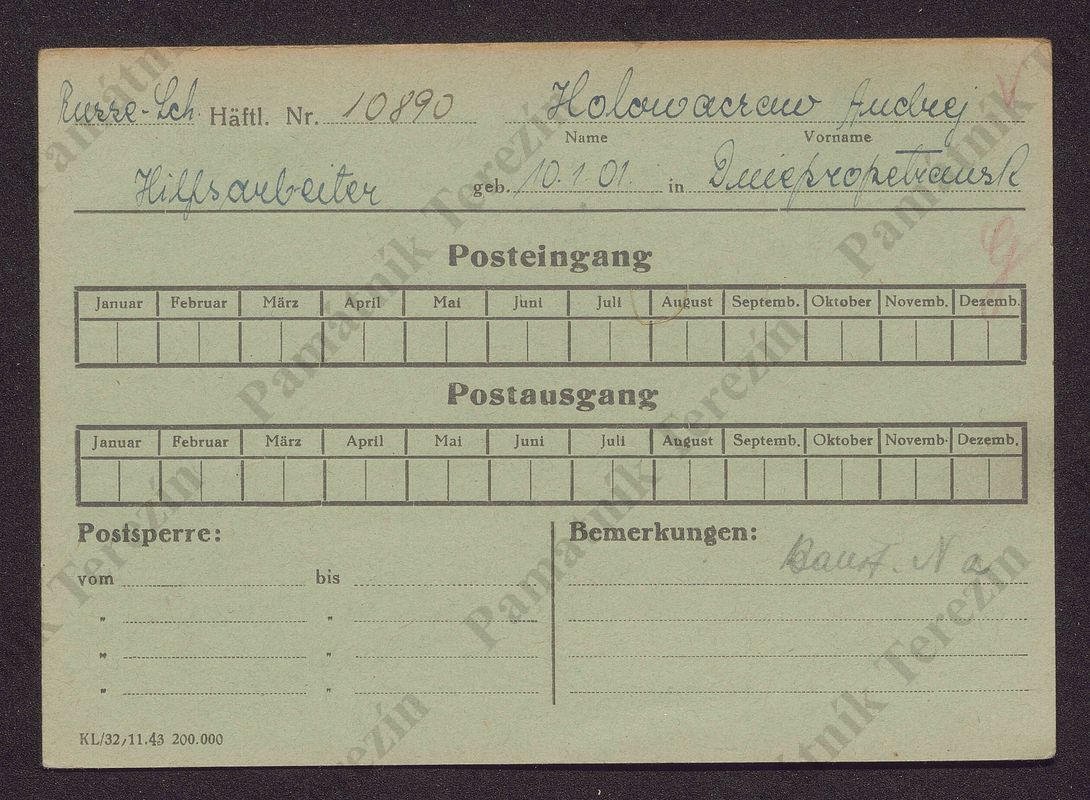 Russe-Sch. Häftl. Nr. 10890 Holowaczew Andrej
Name Vorname
Hilfsarbeiter geb. 10.1.01. in Dniepropetrausk
Posteingang
Januar Februar März April Mai Juni Juli August Septemb. Oktober Novemb. Dezemb.
Postausgang
Januar Februar März April Mai Juni Juli August Septemb. Oktober Novemb. Dezemb.
Postsperre: Bemerkungen:
vom bis
" "
" "
" "
KL/32/11.43 200.000
Památník Terezín